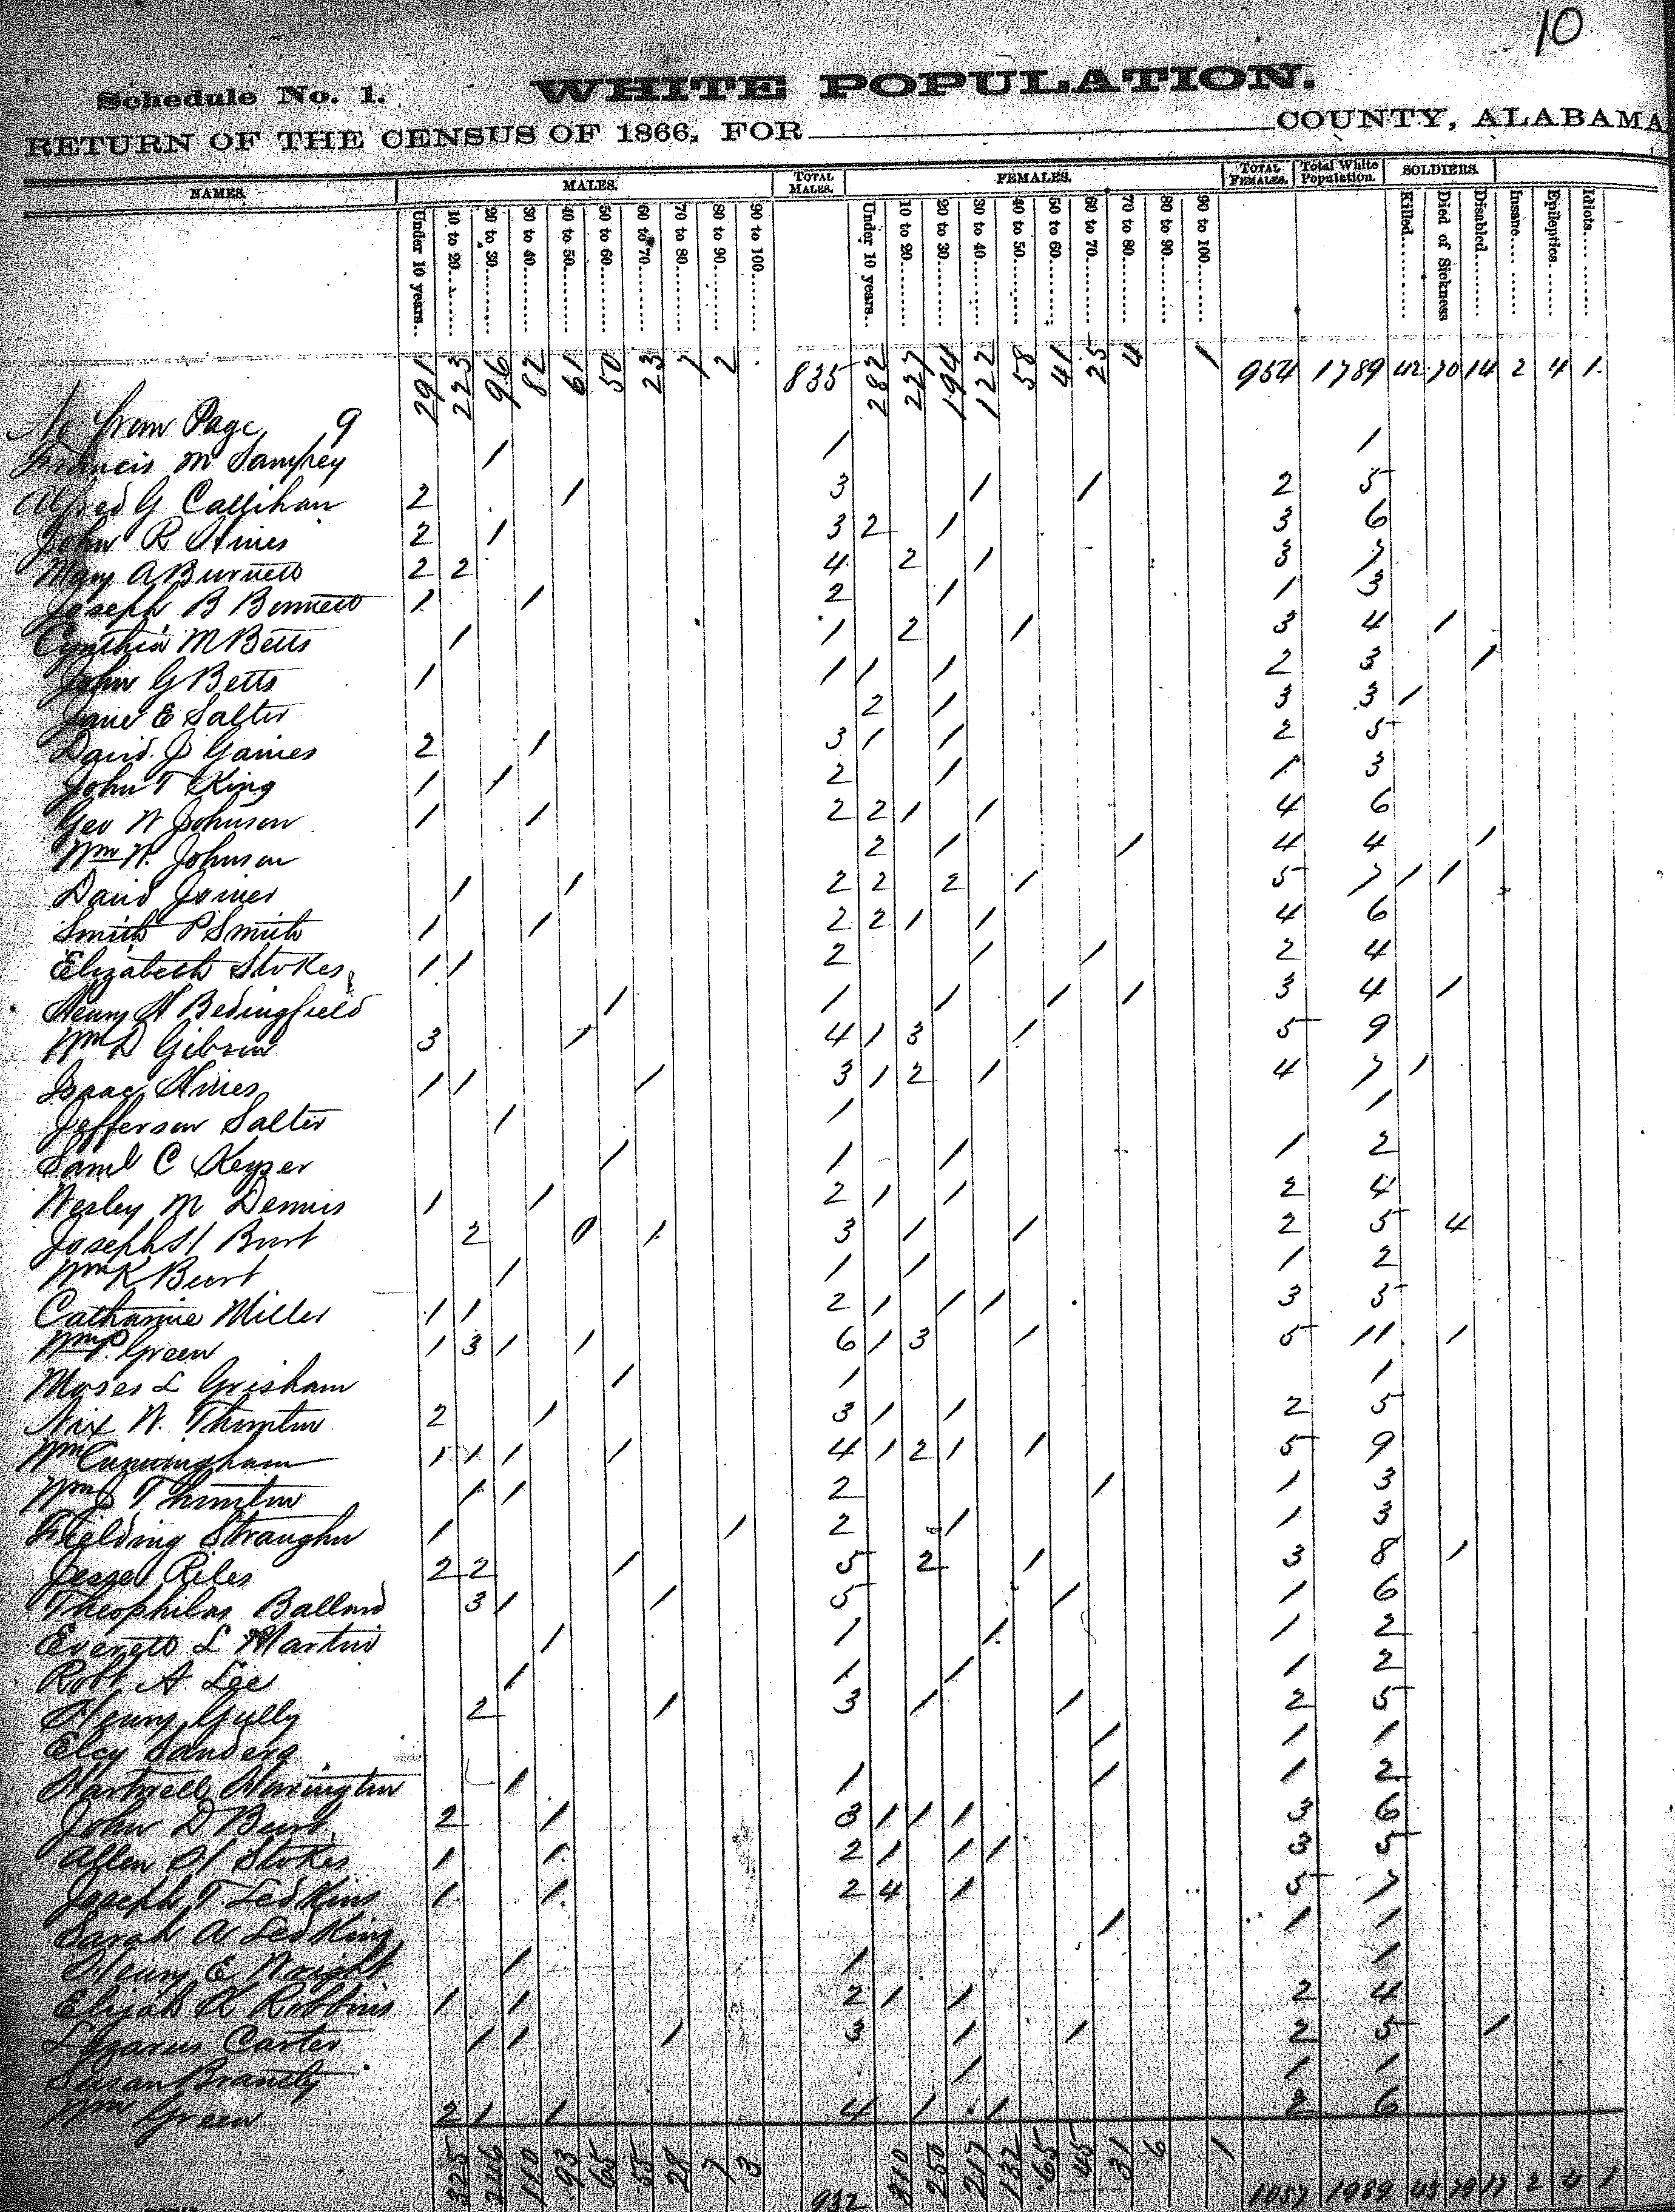 10
Schedule No. 1. WHITE POPULATION.
RETURN OF THE CENSUS OF 1866, FOR COUNTY, ALABAMA
NAMES. MALES. TOTAL MALES. FEMALES. TOTAL FEMALES. Total White Population. SOLDIERS.
Under 10 years. 10 to 20. 20 to 30. 30 to 40. 40 to 50. 50 to 60. 60 to 70. 70 to 80. 80 to 90. 90 to 100. Under 10 years. 10 to 20. 20 to 30. 30 to 40. 40 to 50. 50 to 60. 60 to 70. 70 to 80. 80 to 90. 90 to 100. Killed. Died of Sickness Disabled. Insane. Epileptics. Idiots.
No from Page 9 291 223 96 82 61 50 23 7 2 835 282 227 194 122 58 41 25 4 1 954 1789 42 70 14 2 4 1
Francis M Sampey 1 1 1
Alfred G Callihan 2 1 3 1 1 2 5
John R Hines 2 1 3 2 1 3 6
Mary A Burnett 2 2 4 2 1 3 7
Joseph B Bennett 1 1 2 1 1 3
Cynthia M Betts 1 1 2 1 3 4 1
John G Betts 1 1 1 1 2 3 1
Jane E Salter 2 1 3 3 1
David J Gaines 2 1 3 1 1 2 5
John T King 1 1 2 1 1 3
Geo W Johnson 1 1 2 2 1 1 4 6
Wm W. Johnson 2 1 1 4 4 1
David Joiner 1 1 2 2 2 1 5 7 1 1
Smith P Smith 1 1 2 2 1 1 4 6
Elizabeth Stokes 1 1 2 1 1 2 4
Henry H Bedingfield 1 1 1 1 1 3 4 1
Wm D Gibson 3 1 4 1 3 1 5 9
Isaac Hines 1 1 1 3 1 2 1 4 7 1
Jefferson Salter 1 1 1
Saml C Keyser 1 1 1 1 2
Wesley M Dennis 1 1 2 1 1 2 4
Joseph H Burt 2 0 1 3 1 1 2 5 4
Wm K Burt 1 1 1 1 2
Catharine Miller 1 1 2 1 1 1 3 5
Wm P. Green 1 3 1 1 6 1 3 1 5 11 1
Moses L Grisham 1 1 1
Nix W. Thornton 2 1 3 1 1 2 5
Wm Cunningham 1 1 1 1 4 1 2 1 1 5 9
Wm J Thornton 1 1 2 1 1 3
Fielding Straughn 1 1 2 1 1 3
Jesse Riles 2 2 1 5 2 1 3 8 1
Theophilus Ballard 3 1 1 5 1 1 6
Everett L Martin 1 1 1 1 2
Robt A. Lee 1 1 1 1 2
Henry Gully 2 1 3 1 1 2 5
Elcy Sanders 1 1 1
Hartwell Harrington 1 1 1 1 2
John D Burt 2 1 3 1 1 1 3 6
Allen H Stokes 1 1 2 1 1 1 3 5
Joseph T Ledkins 1 1 2 4 1 5 7
Sarah A Ledkins 1 1 1
Henry E Wright 1 1 1
Elijah R Robbins 1 1 2 1 1 2 4
Lazarus Carter 1 1 1 3 1 1 2 5 1
Susan Brantly 1 1 1
Wm Green 2 1 1 4 1 1 2 6
325 246 110 93 65 55 28 7 3 932 310 250 217 132 65 45 31 6 1 1057 1989 45 79 17 2 4 1